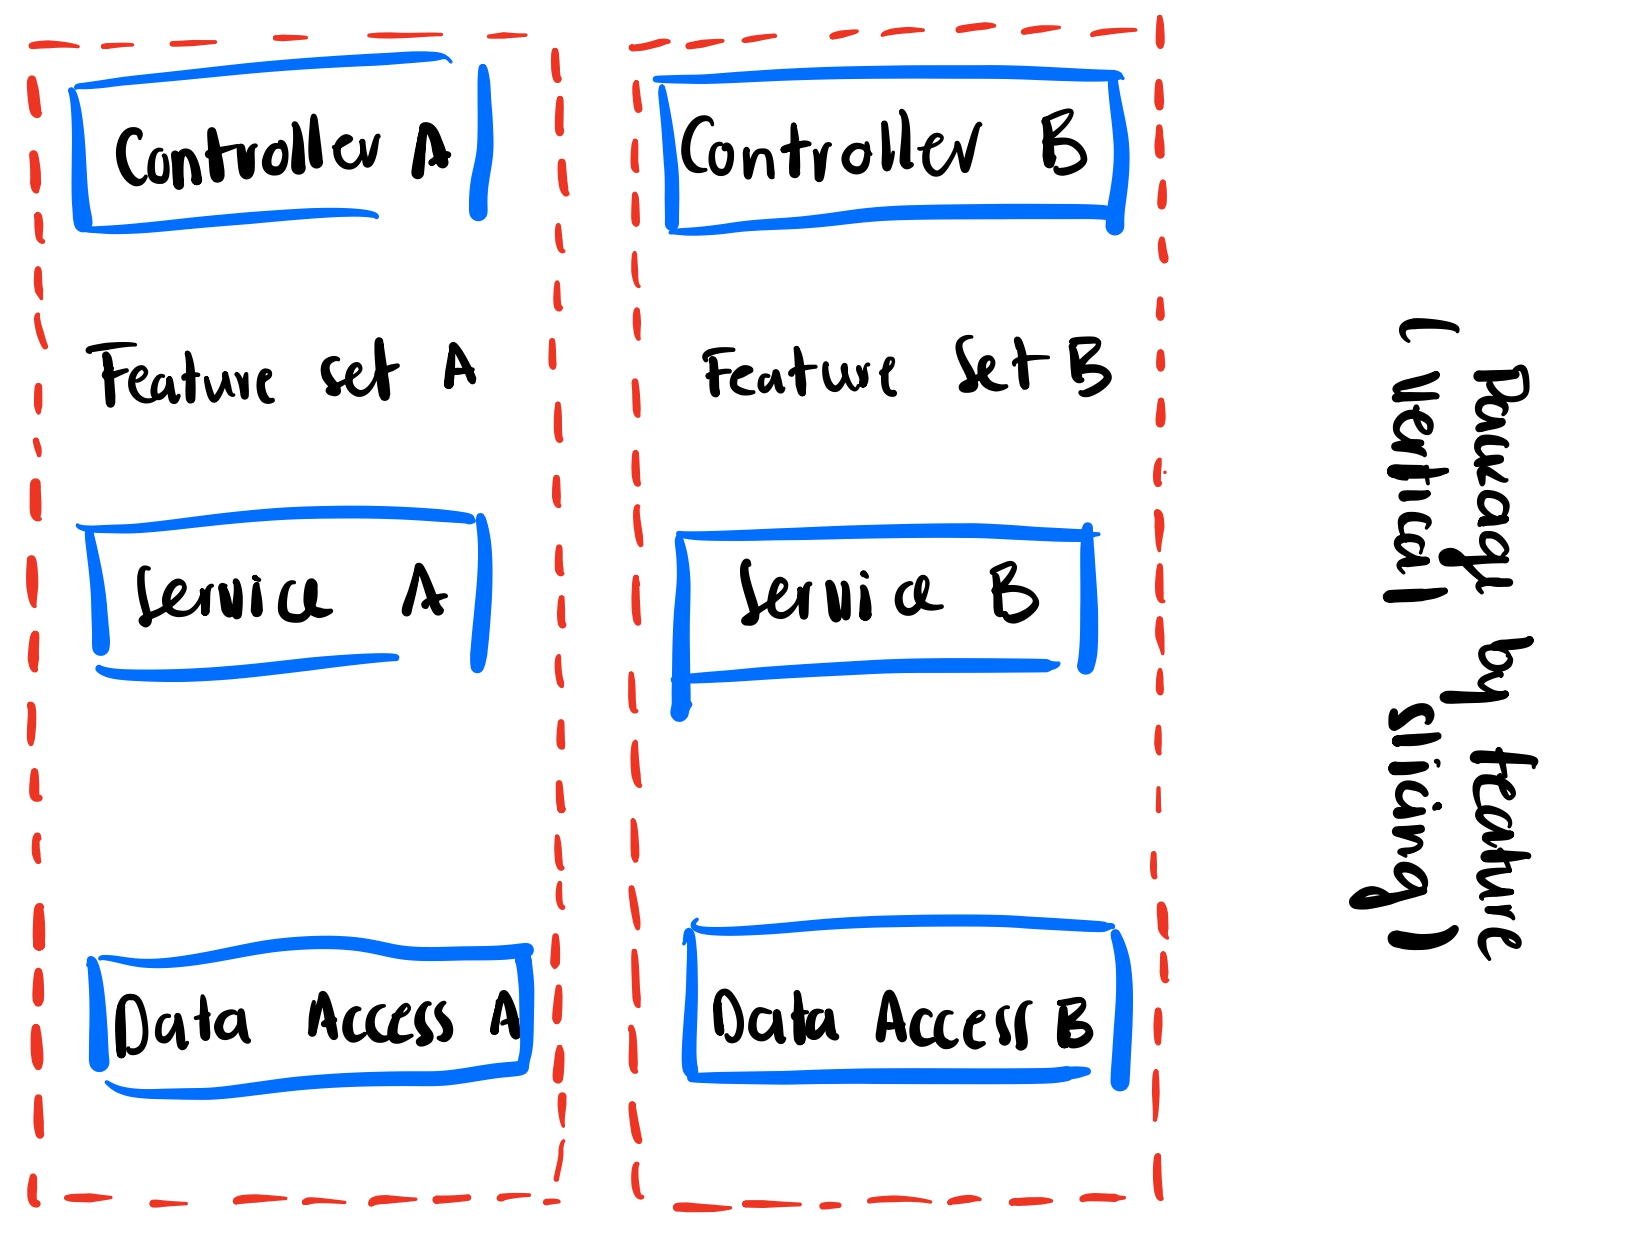 Controller A
Feature set A
Service A
Data Access A
Controller B
Feature Set B
Service B
Data Access B
Package by feature
(vertical slicing)